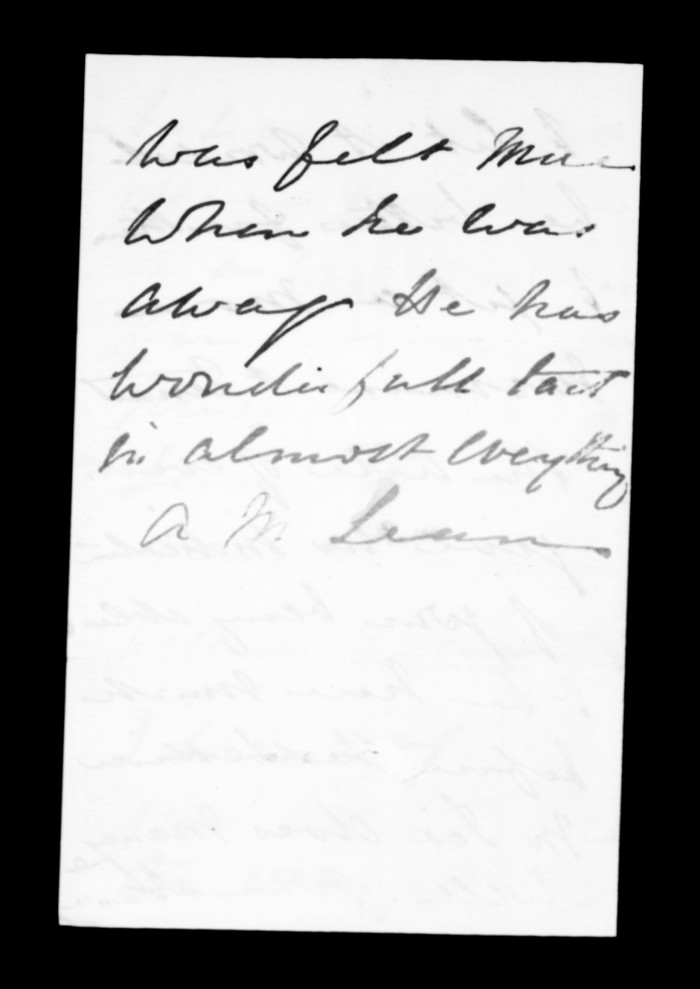 was felt Muc
when he was
away He has
wonderfull tact
in almost everything
A M. Lean